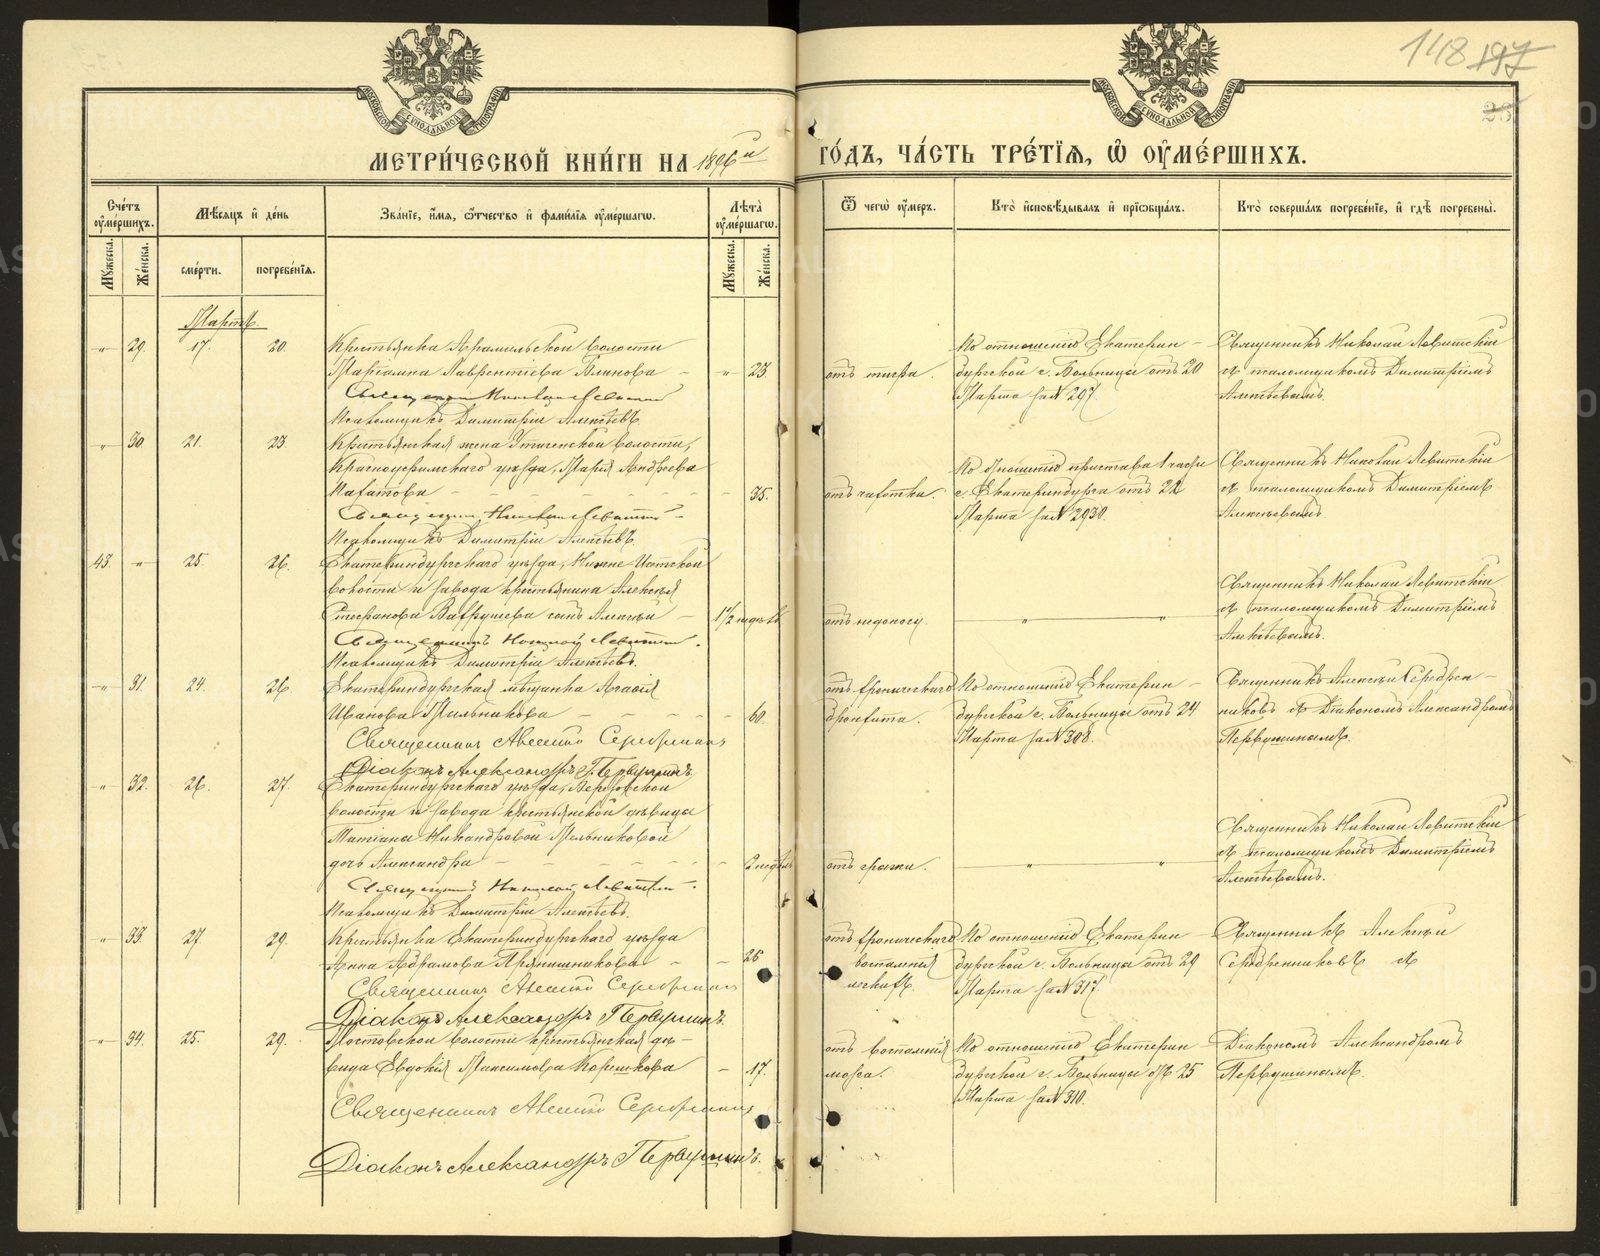 148 197
26
МОСКОВСКОЙ СѴНОДАЛЬНОЙ ТИПОГРАФІИ
МОСКОВСКОЙ СѴНОДАЛЬНОЙ ТИПОГРАФІИ
МЕТРИ́ЧЕСКОЙ КНИ́ГИ НА 1896й ГО́ДЪ, ЧА́СТЬ ТРЕ́ТІѦ, Ѽ ОУ҆МЕ́РШИХЪ.
Сче́тъ оу҆ме́ршихъ.
Мꙋ́жеска.
Же́нска.
Мѣ́сѧцъ и҆ де́нь
сме́рти.
погребе́нїѧ.
Зва́нїе, и҆́мѧ, ѻ҆́тчество и҆ фами́лїѧ оу҆ме́ршагѡ.
Лѣ́та оу҆ме́ршагѡ.
Мꙋ́жеска.
Же́нска.
Ѿ чегѡ̀ оу҆́меръ.
Кто̀ и҆сповѣ́дывалъ и҆ прїѡбща́лъ.
Кто̀ соверша́лъ погребе́нїе, и҆ гдѣ̀ погребены̀.
Мартъ.
„ 29. 17. 20. Крестьянка Арамильской волости
Лаврентіева Блинова – „ 23.
Священникъ Николай Левитскій
Псаломщикъ Димитрій Алексѣевъ
отъ тифа.
По отношенію Екатерин-
бургской г. Больницы отъ 20
Марта за № 297.
Священникъ Николай Левитскій
съ псаломщикомъ Димитріемъ
Алексѣевымъ.
„ 30 21. 23. Крестьянская жена волости,
Красноуфимскаго уѣзда, Марія Андреева
35.
Священникъ Николай Левитскій
Псаломщикъ Димитрій Алексѣевъ
отъ чахотки.
По отношенію пристава 1 части
г. Екатеринбурга отъ 22
Марта за № 2930.
Священникъ Николай Левитскій
съ псаломщикомъ Димитріемъ
Алексѣевымъ
43. „ 25 26. Екатеринбургскаго уѣзда, Нижне Исетской
волости и завода крестьянина Алексѣя
Стефанова Вахрушева сынъ Алексѣй – 1½ недѣль
Священникъ Николай Левитскій.
Псаломщикъ Димитрій Алексѣевъ.
отъ недоносу. „ „
Священникъ Николай Левитскій
съ псаломщикомъ Димитріемъ
Алексѣевымъ.
„ 31. 24. 26. Екатеринбургская мѣщанка Агафія
Иванова Мыльникова 60.
Священникъ Алексѣй Серебренниковъ
Діаконъ Александръ Первушинъ
отъ хроническаго
бронхита.
По отношенію Екатерин-
бургской г. Больницы отъ 24
Марта за № 308.
Священникъ Алексѣй Серебрен-
никовъ съ Діакономъ Александромъ
Первушинымъ.
„ 32. 26. 27. Екатеринбургскаго уѣзда, Березовской
волости и завода крестьянской дѣвицы
Татіаны Никандровой Мельниковой
дочь Александра 2 недѣль
Священникъ Николай Левитскій.
Псаломщикъ Димитрій Алексѣевъ.
отъ грыжи. „ „
Священникъ Николай Левитскій
съ псаломщикомъ Димитріемъ
Алексѣевымъ.
„ 33. 27. 29. Крестьянка Екатеринбургскаго уѣзда
Анна Абрамова Прянишникова – – 26
Священникъ Алексѣй Серебренниковъ
Діаконъ Александръ Первушинъ.
отъ хроническаго
воспаленія
почекъ.
По отношенію Екатерин
бургской г. Больницы отъ 29
Марта за № 317.
Священникъ Алексѣй
Серебренниковъ съ
„ 34. 25. 29. Мостовской волости крестьянская дѣ-
вица Евдокія Максимова Корешкова – 17.
Священникъ Алексѣй Серебренниковъ
Діаконъ Александръ Первушинъ.
отъ воспаленія
мозга.
По отношенію Екатерин
бургской г. Больницы отъ 25
Марта за № 310.
Діакономъ Александромъ
Первушинымъ.